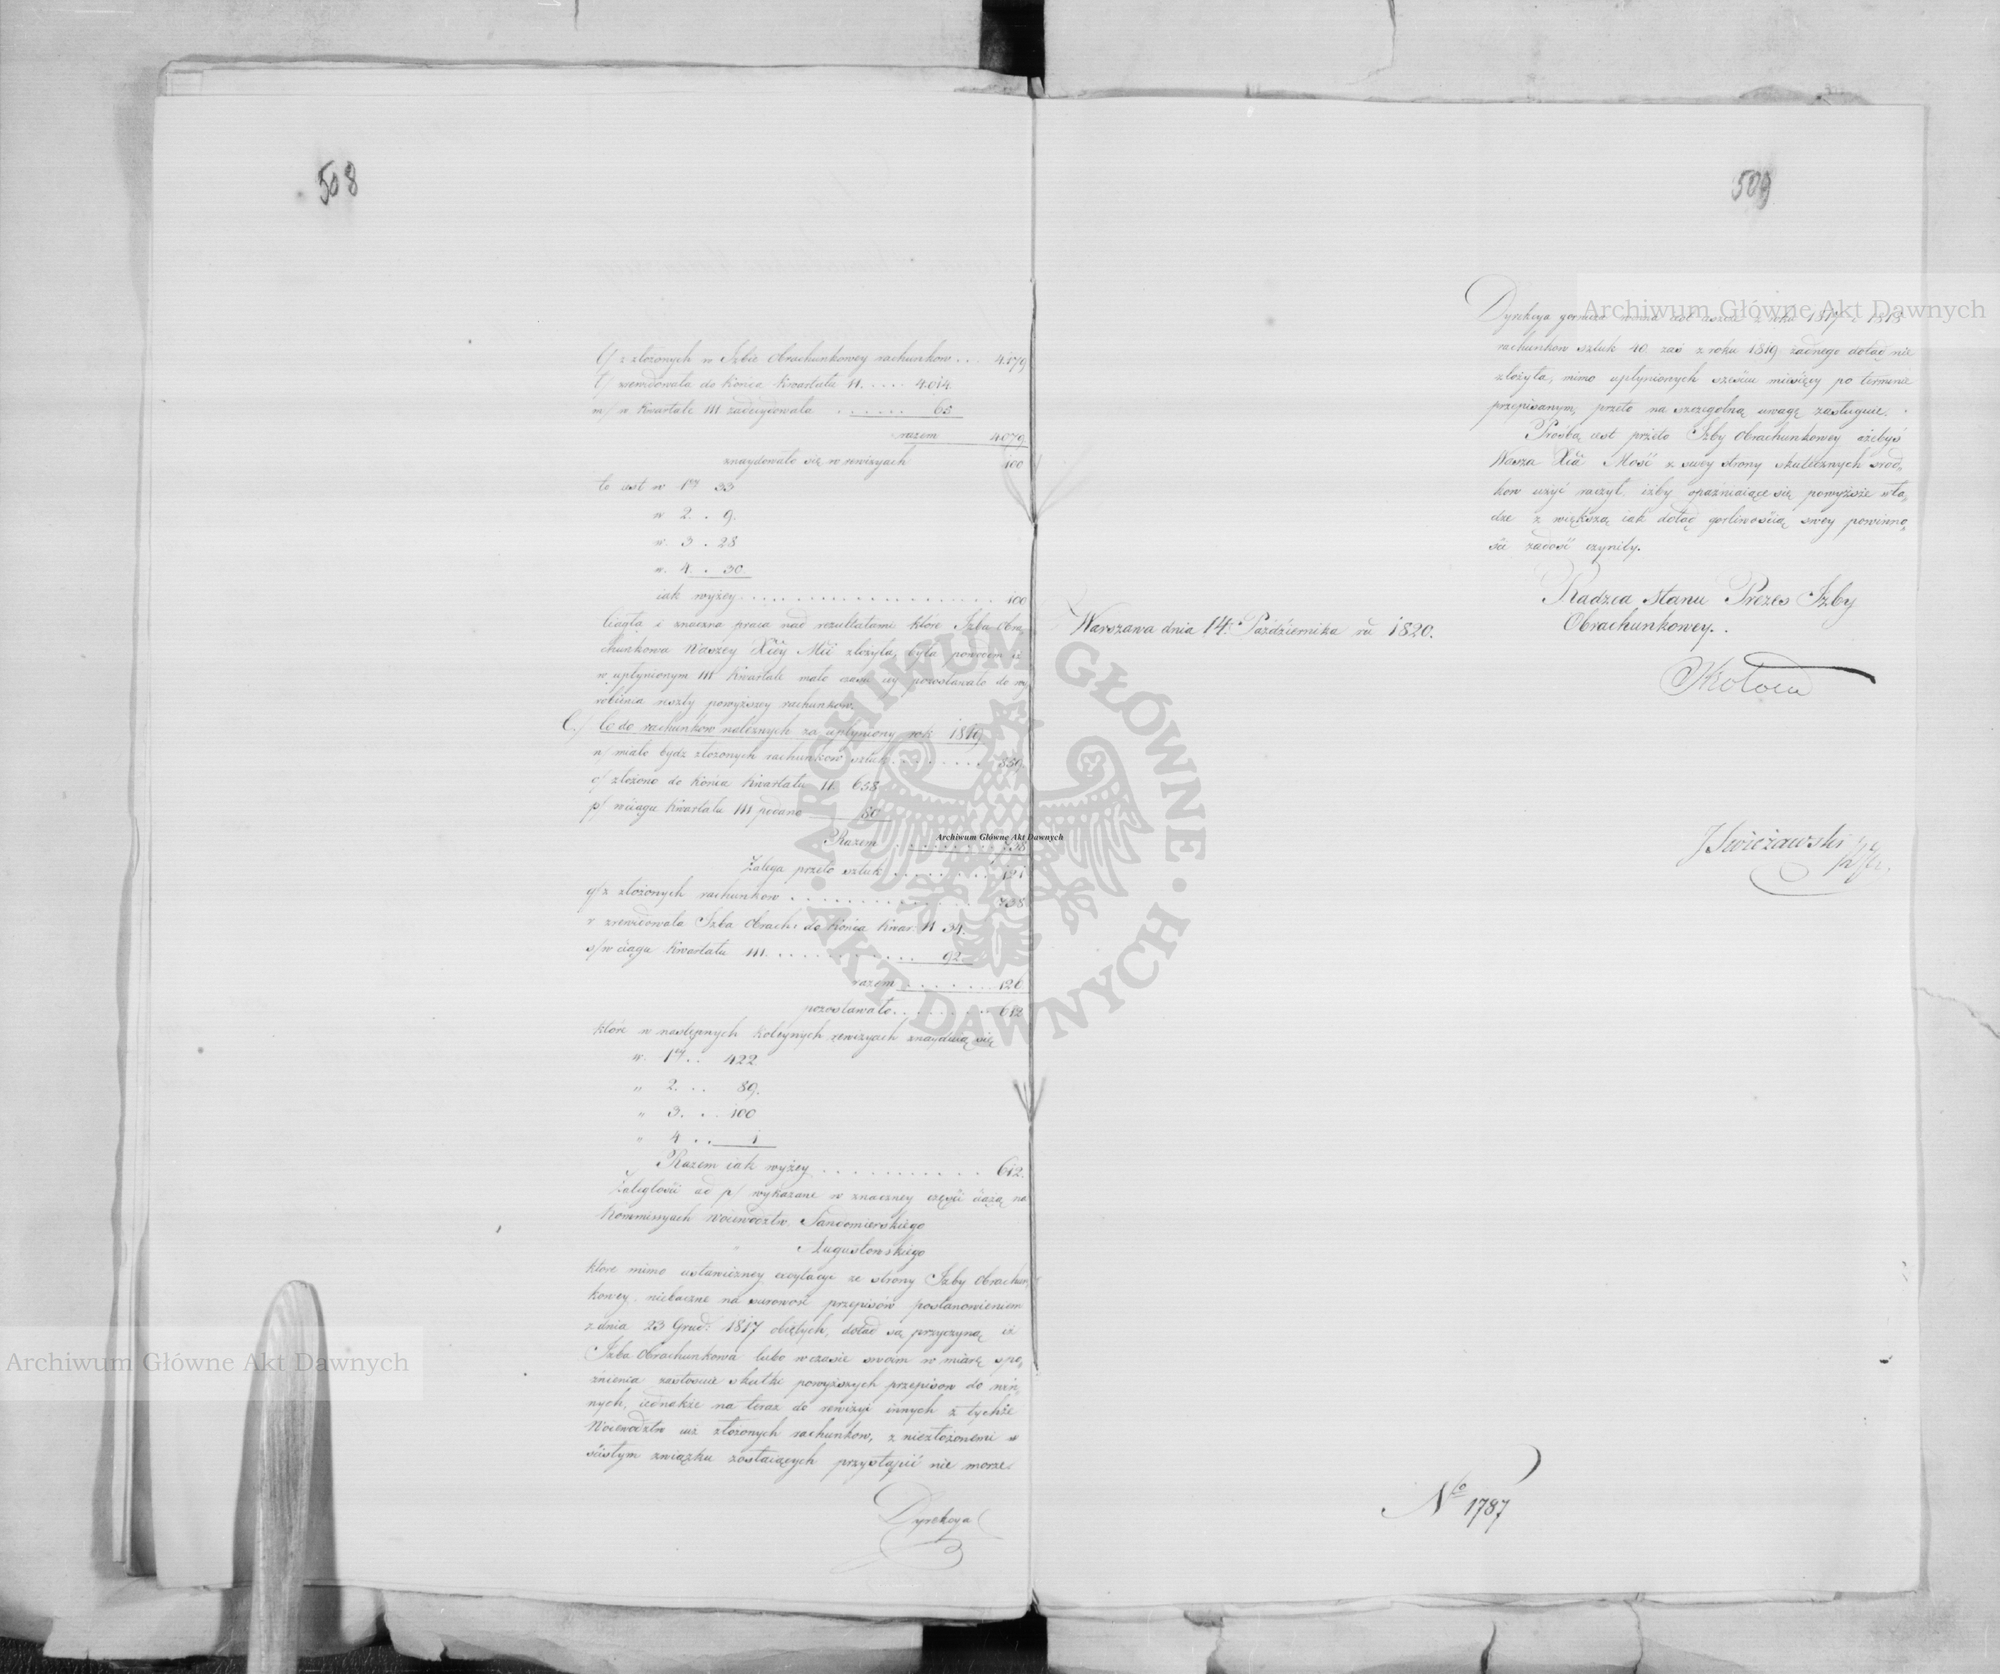 508
l/ z złożonych w Izbie Obrachunkowey rachunkow . . . 4079
ł/ zrewidowała do końca Kwartału II. . . . . 4014.
m/ w Kwartale III zadecydowała . . . . . . 65
razem 4079
znaydowało się w rewizyach 100
to iest w 1ey 33
w 2. . 9.
w. 3 . 28
w. 4. . 30.
iak wyżey . . . . . . . . . . . . . . . . . . . . 100
Ciągła i znaczna praca nad rezultatami które Izba Obra-
chunkowa Waszey Xcéy Mci złożyła, była powodem iż
w upłynionym III Kwartale mało czasu iey pozostawało do wy
robienia reszty powyższey rachunkow.
C./ Co do rachunkow należnych za upłyniony rok 1819
n/ miało bydz złożonych rachunkow sztuk . . . . . . . 859.
o/ złożono do końca Kwartału II. 658
p/ w ciągu Kwartału III podano 80
Razem . . . . . . . . 738
Zalega przeto sztuk . . . . . . . . 121
q/ z złożonych rachunkow . . . . . . . . . . . . . . 738
r zrewidowała Izba Obrach: do końca Kwar: II 34.
s/ w ciągu Kwartału III. . . . . . . . . . . . 92.
razem . . . . . . . 126
pozostawało . . . . . . . . 612
które w następnych koleynych rewizyach znayduią się
w. 1ey . . 422
" 2. . . 89.
" 3. . . 100
" 4 . . 1
Razem iak wyżey . . . . . . . . . . . 612.
Zaległości ad p/ wykazane w znaczney części ciążą na
Kommissyach Woiewodztw. Sandomierskiego
Augustowskiego
które mimo ustawiczney excytacyi ze strony Izby Obrachun,
kowey. niebaczne na surowość przepisów postanowieniem
z dnia 23 Grud: 1817 obiętych, dotąd są przyczyną iż
Izba Obrachunkowa lubo w czasie swoim w miarę spó,
źnienia zastosuie skutki powyższych przepisow do win,
nych, iednakże na teraz do rewizyi innych z tychże
Woiewodztw iuż złożonych rachunkow, z niezłożonemi w
ścisłym związku zostaiących przystąpić nie może.
Dyrekcya
509
Dyrekcya gornicza winna iest ieszcze z roku 1817 i 1818
rachunkow sztuk 40. zaś z roku 1819 żadnego dotąd nie
złożyła, mimo upłynionych sześciu miesięcy po terminie
przepisanym, przeto na szczegolną uwagę zasługuie.
Prośbą iest przeto Izby Obrachunkowey ażebyś
Wasza Xcia Mość z swey strony skutecznych srod,
kow użyć raczył, iżby opaźniaiące się powyższe wła,
dze z większą iak dotąd gorliwością swey powinno,
ści zadość czyniły.
Radzca Stanu Prezes Izby
Obrachunkowey.
Warszawa dnia 14. Października ru 1820.
J Swieżawski
No 1787
Archiwum Główne Akt Dawnych
Archiwum Główne Akt Dawnych
Archiwum Główne Akt Dawnych
ARCHIWUM GŁÓWNE AKT DAWNYCH